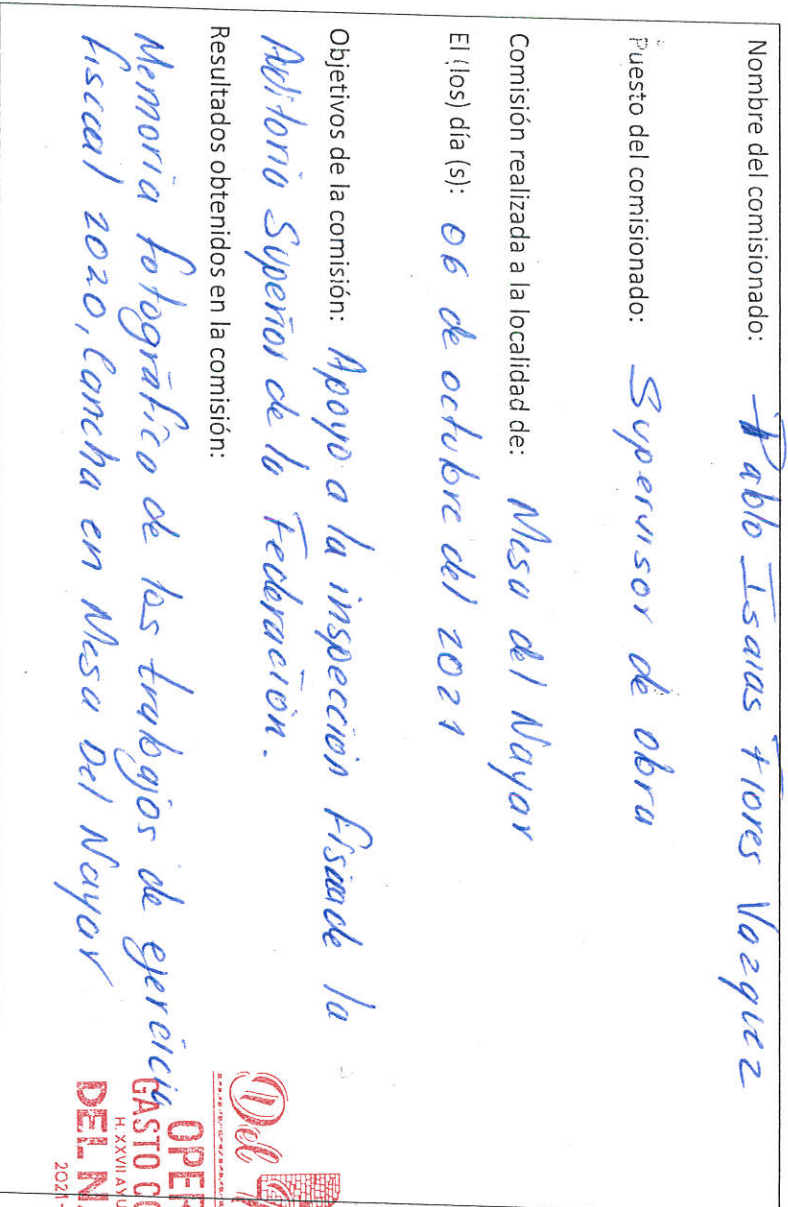 Nombre del comisionado: Pablo Isaias Flores Vazquez
Puesto del comisionado: Supervisor de obra
Comisión realizada a la localidad de: Mesa del Nayar
El (los) día (s): 06 de octubre del 2021
Objetivos de la comisión: Apoyo a la inspección física de la
Auditoria Superior de la Federación.
Resultados obtenidos en la comisión:
Memoria fotográfica de los trabajos de ejercicio
fiscal 2020, Cancha en Mesa Del Nayar
Del
OPER
GASTO CO
H. XXVII AYU
DEL N
2021 -